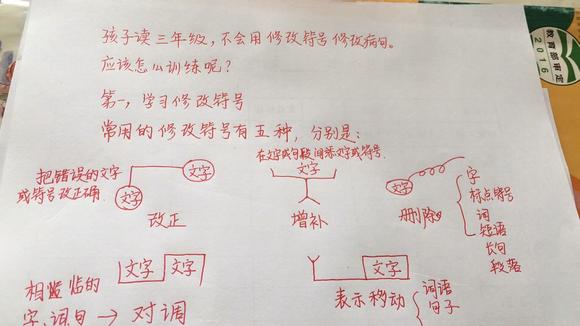 孩子读三年级,不会用修改符号修改病句。
应该怎么训练呢?
第一,学习修改符号
常用的修改符号有五种,分别是:
把错误的文字
或符号改正确
文字
文字
改正
在文字或句段间添文字或符号.
文字
增补
文字
删除
字
标点符号
词
短语
长句
段落
相
临的
字、词句→对调
文字 文字
文字
表示移动
词语
句子
教育部审定
2016